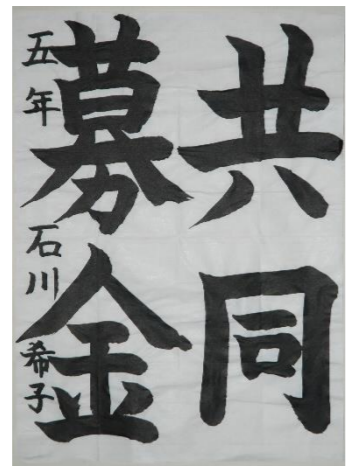 共同
募金
五年 石川希子